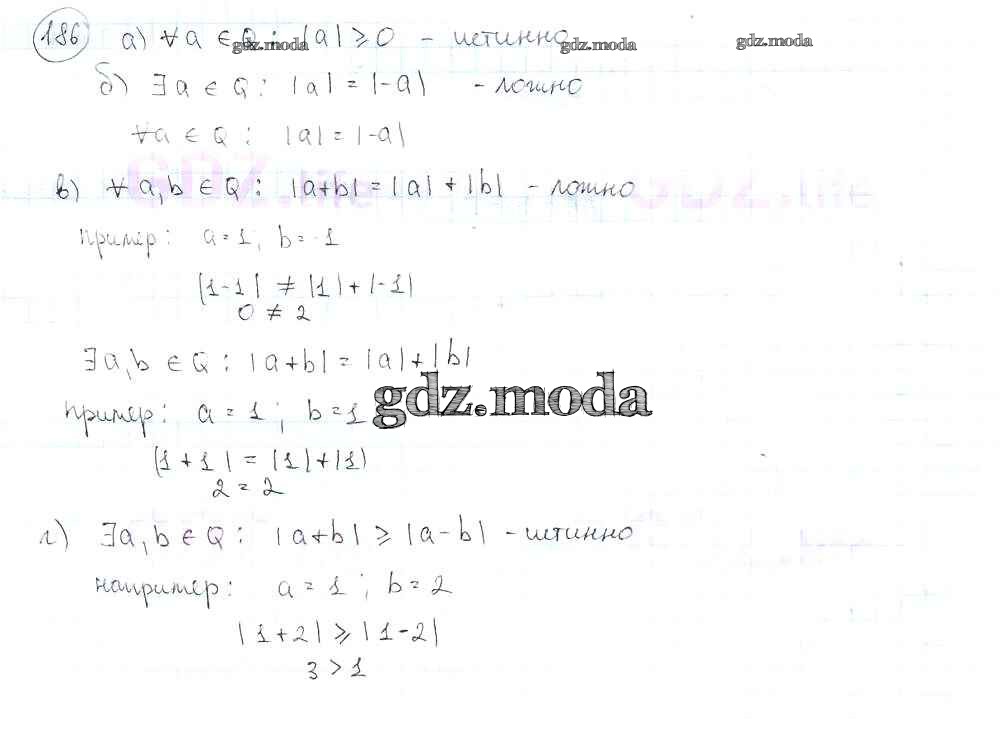 186 а) ∀a ∈ Q : |a| ⩾ 0 - истинно
gdz.moda gdz.moda gdz.moda
б) ∃a ∈ Q : |a| = |-a| - ложно
∀a ∈ Q : |a| = |-a|
GDZ.life GDZ.life
в) ∀a,b ∈ Q : |a+b| = |a| + |b| - ложно
пример: a = 1; b = -1
|1-1| ≠ |1| + |-1|
0 ≠ 2
∃a,b ∈ Q : |a+b| = |a| + |b|
gdz.moda
пример: a = 1; b = 1
|1+1| = |1|+|1|
2 = 2
г) ∃a,b ∈ Q : |a+b| ⩾ |a-b| - истинно
например: a = 1; b = 2
|1+2| ⩾ |1-2|
3 > 1